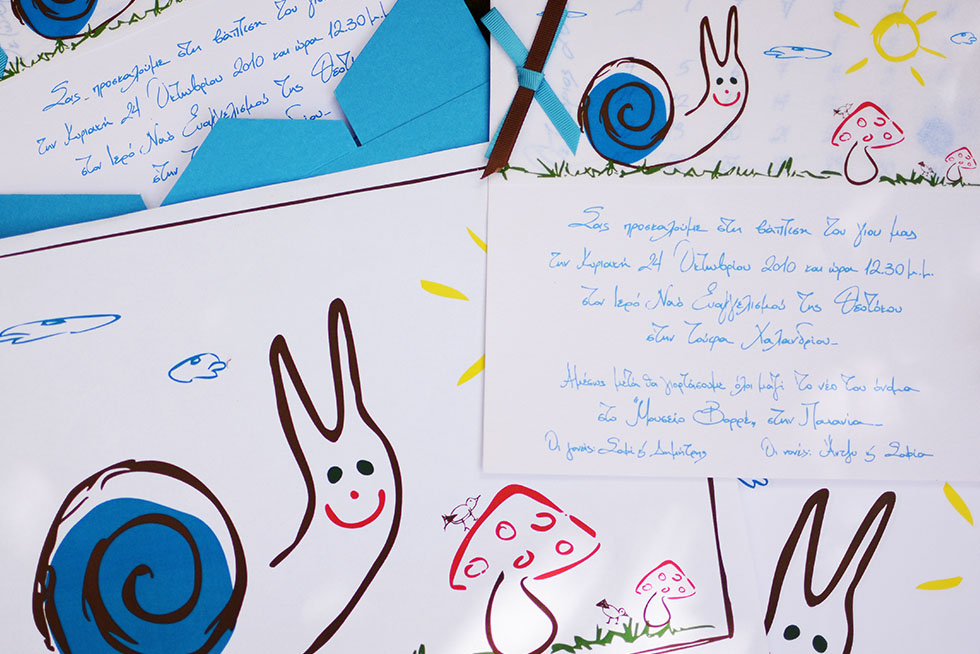 Σας προσκαλούμε στη βάπτιση του γιου μας
την Κυριακή 24 Οκτωβρίου 2010 και ώρα 12.30 μ.μ.
στον Ιερό Ναό Ευαγγελισμού της Θεοτόκου
στην Τούφα Χαλανδρίου_
Αμέσως μετά θα γιορτάσουμε όλοι μαζί το νέο του όνομα
στο Μουσείο Βορρέ, στην Παιανία_
Οι γονείς: Σοφί ς Δημήτρης
Οι νονές: Άντζυ ς Σοφία
Σας προσκαλούμε στη βάπτιση του γιου
την Κυριακή 24 Οκτωβρίου 2010 και ώρα 12.30 μ.μ.
στον Ιερό Ναό Ευαγγελισμού της Θεοτ
στην